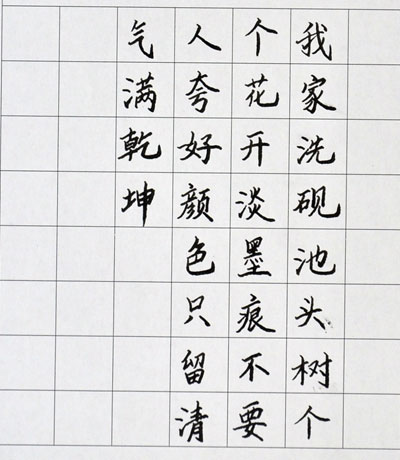 我家洗砚池头树个
个花开淡墨痕不要
人夸好颜色只留清
气满乾坤